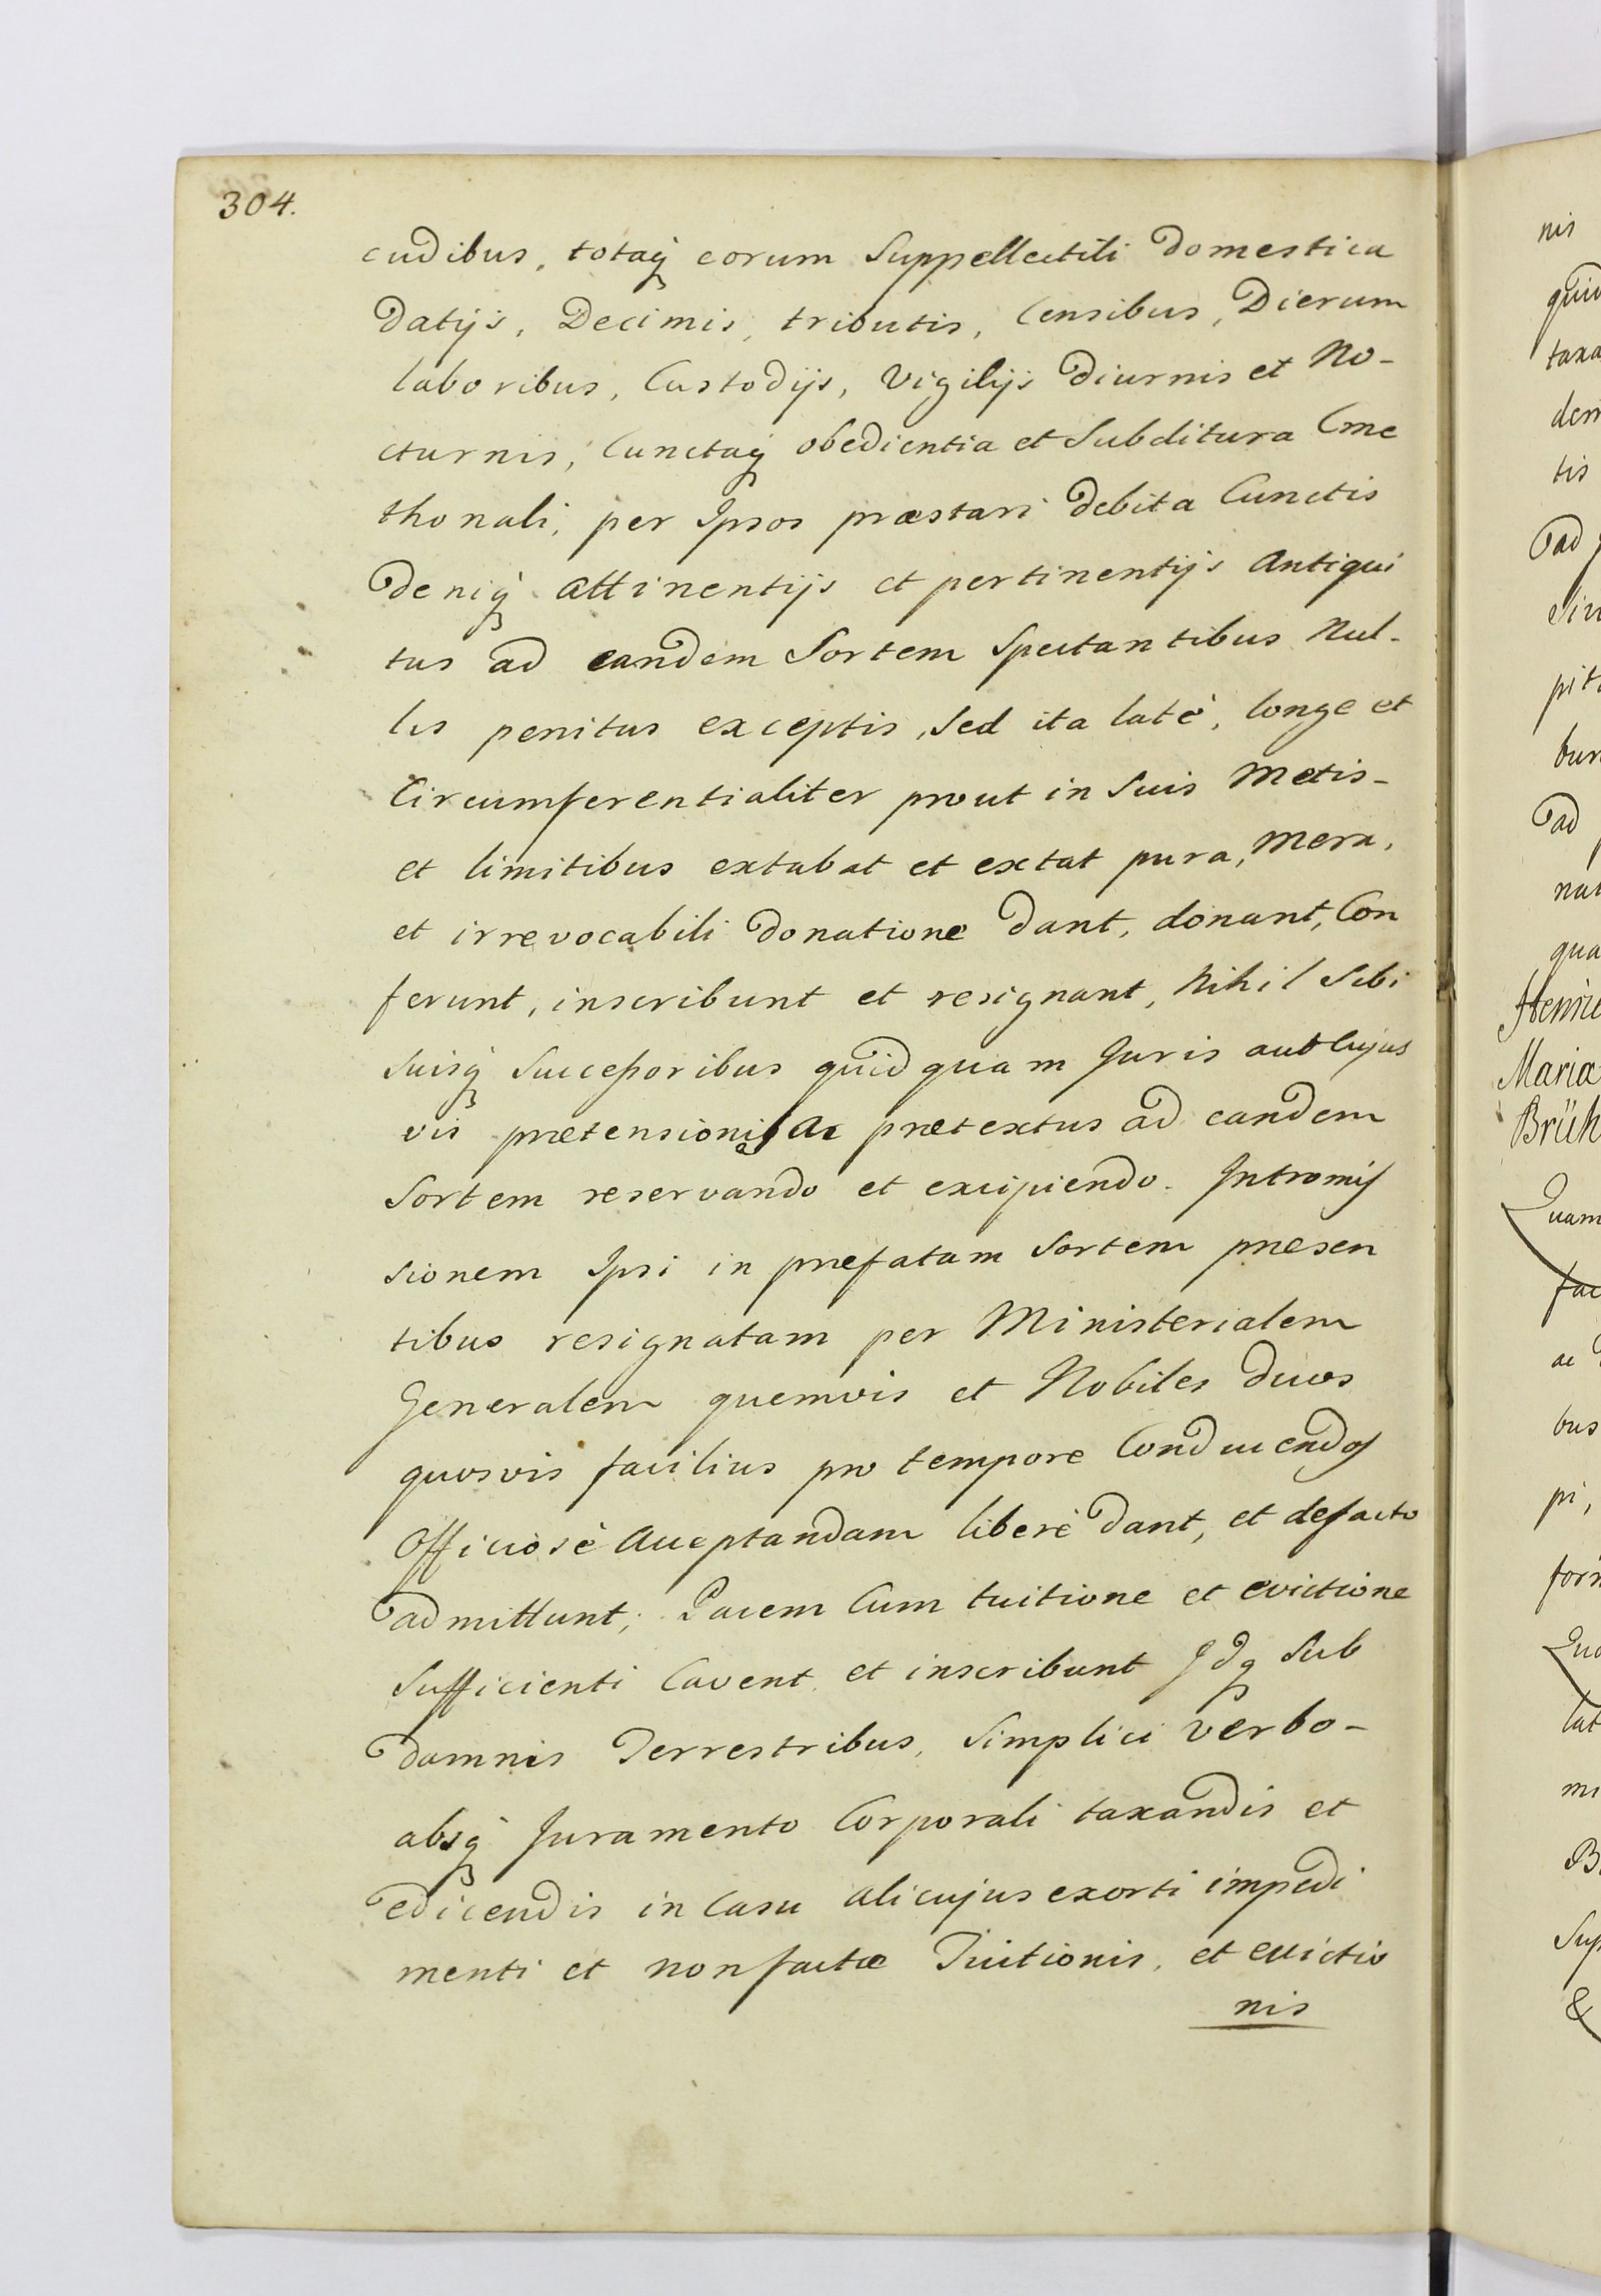 304.
cudibus, totaq́ eorum Suppellectili Domestica
Datijs, Decimis, tributis, Censibus, Dierum
laboribus, Custodijs, Vigilijs Diurnis et No-
cturnis, Cunctaq́ obedientia et Subditura Cme
thonali, per Ipsos præstari Debita Cunctis
Deniq́ attinentijs et pertinentijs Antiqui
tus ad eandem Sortem Spectantibus Nul-
lis penitus exceptis, Sed ita latè, longe et
Circumferentialiter prout in Suis Metis-
et limitibus extabat et extat pura, Mera,
et irrevocabili Donatione Dant, donant, Con
ferunt, inscribunt et resignant, Nihil Sibi
Suisq́ Succeſsoribus quidquam Juris aut Cujus
vis prætensionis ac prætextus ad eandem
Sortem reservando et excipiendo. Intromiſ
sionem Ipsi in præfatam Sortem præsen
tibus resignatam per Ministerialem
Generalem quemvis et Nobiles Duos
quosvis facilius pro tempore Conducendos
Officiosè Acceptandam liberè Dant, et defacto
admittunt; Pacem Cum tuitione et evictione
Sufficienti Cavent et inscribunt Idq Sub
Damnis Terrestribus, Simplici Verbo-
absq́ Juramento Corporali taxandis et
edicendis in Casu alicujus exorti impedi
menti et non factæ Tuitionis, et evictio
nis
nis
taxa
dem
tis
ad
pit
bun
ad
nat
qua
Henric
Mariæ
Brüh
Quam
fac
ac
bus
pi,
form
lat
B
Sup
&